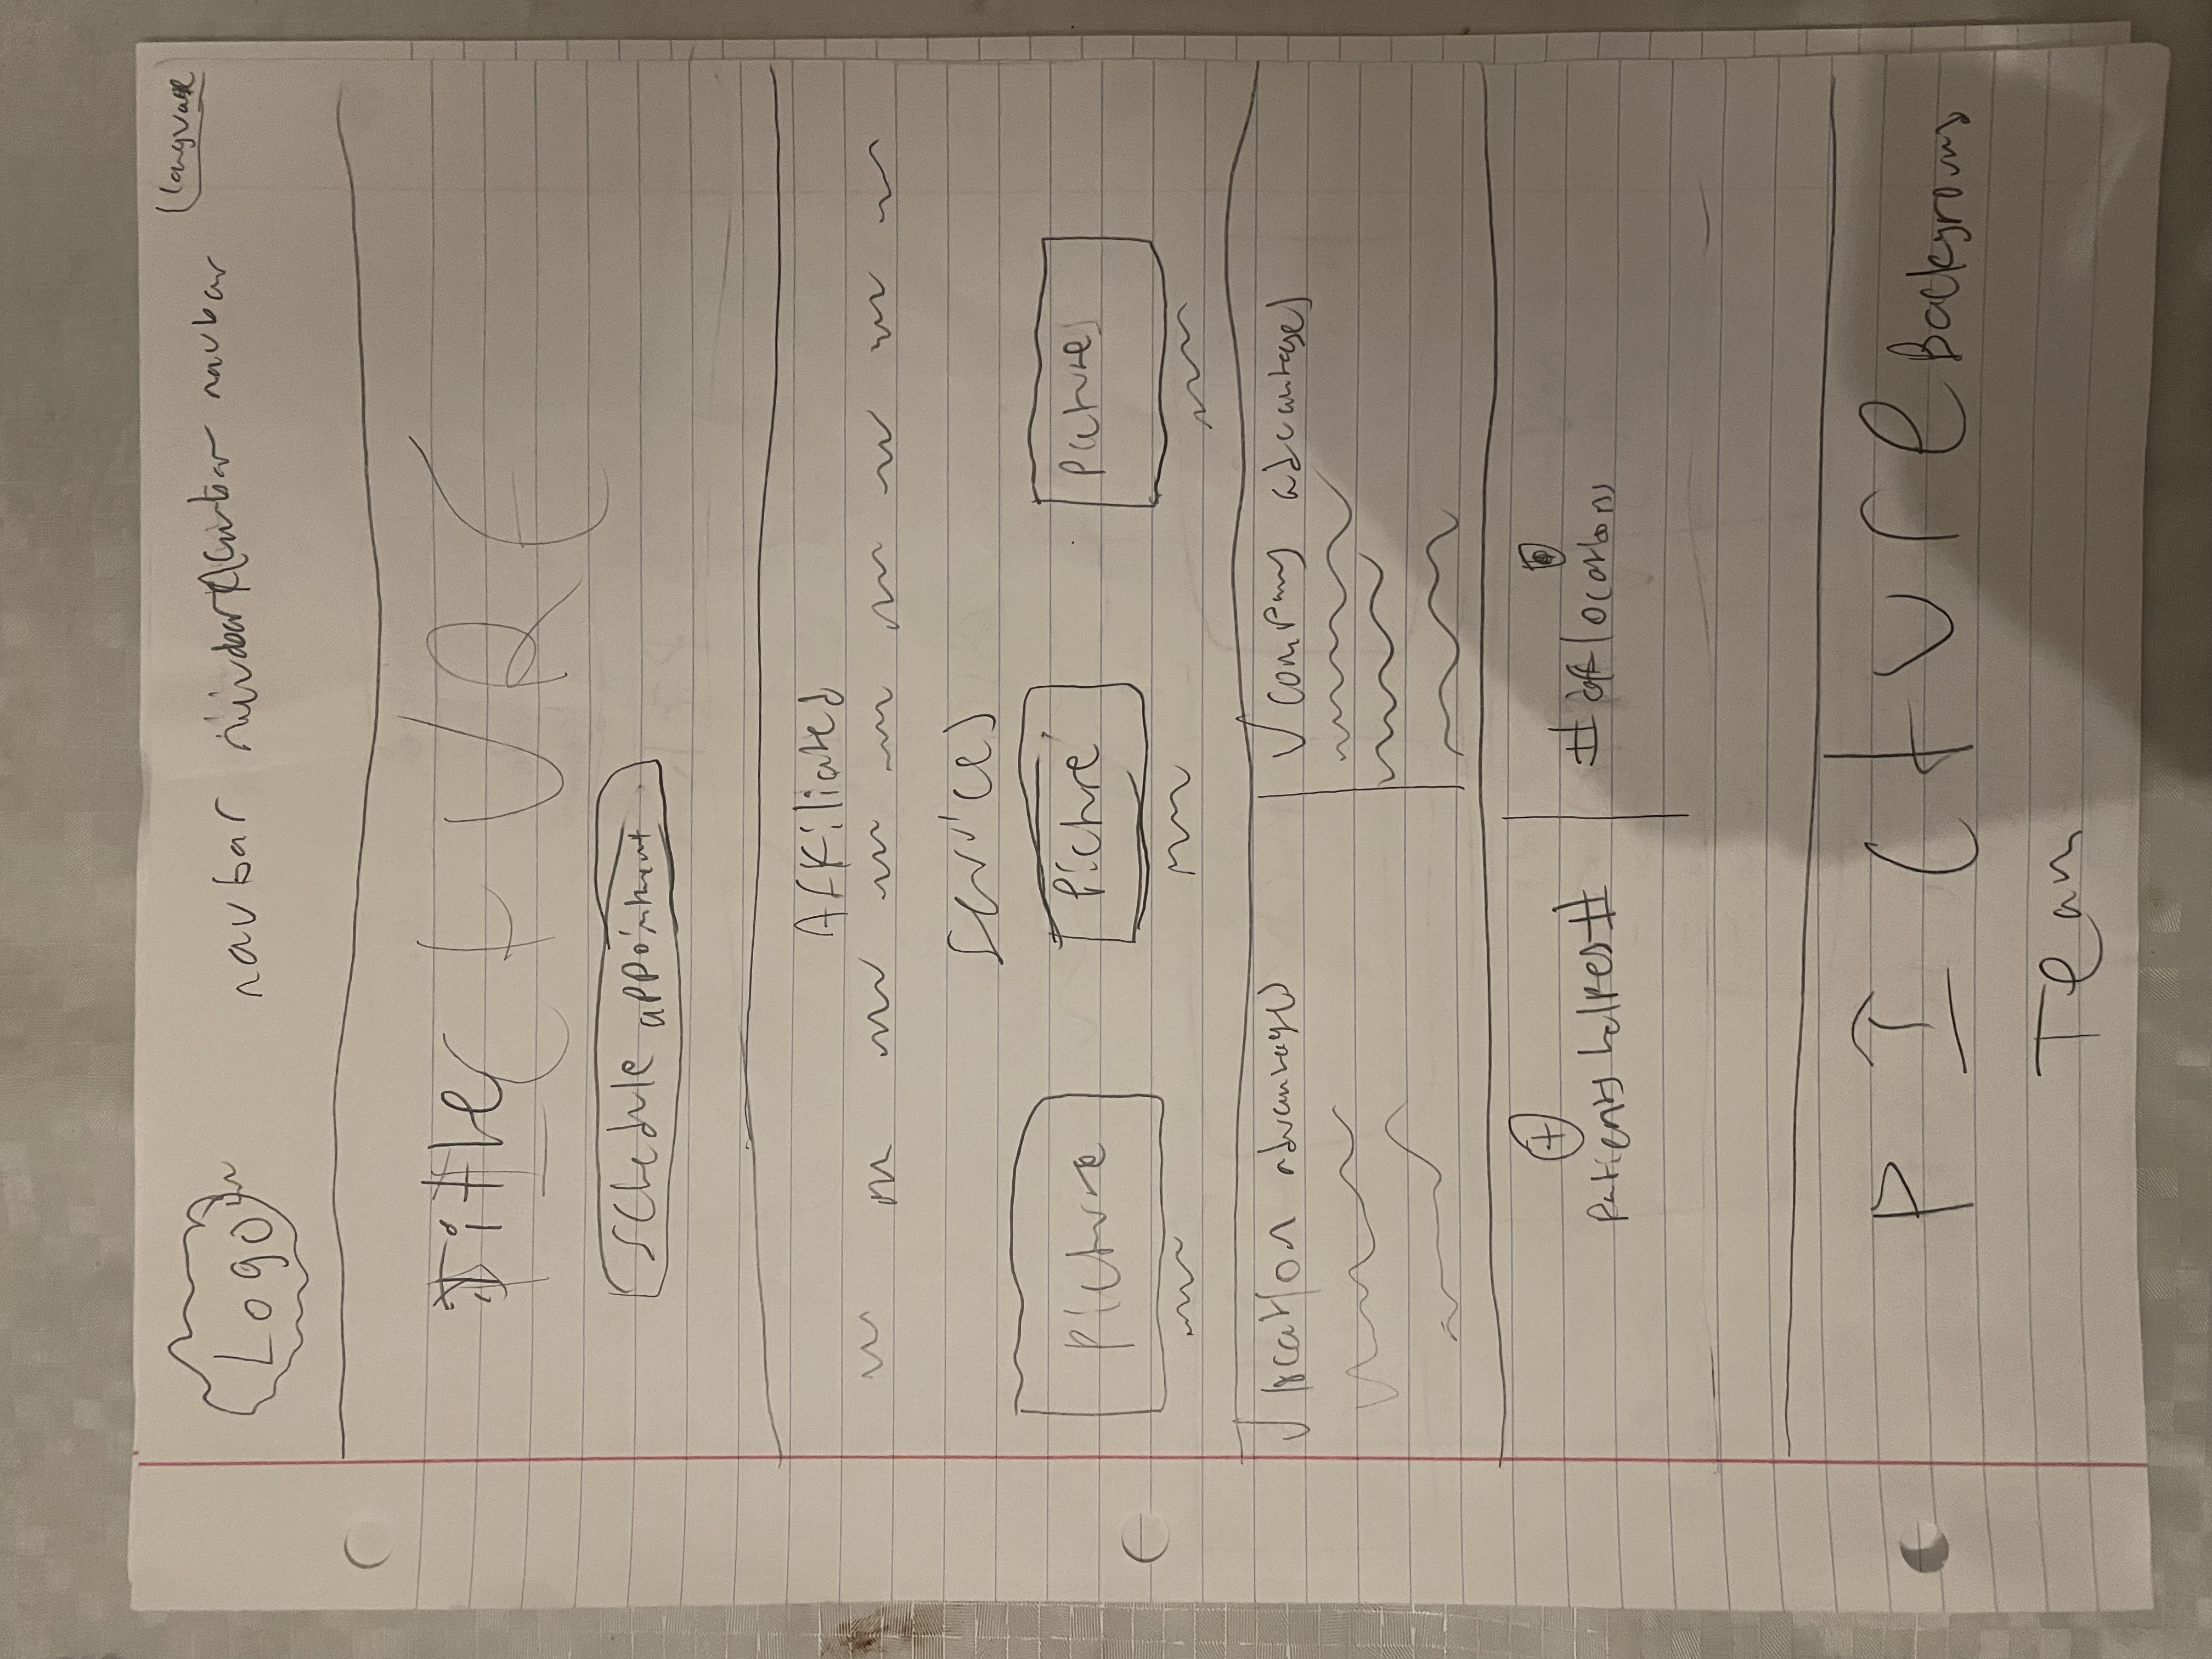 language
Logo navbar navbar navbar
Title
PICTURE
schedule appointment
Affiliated
Services
Picture Picture Pictures
location advantages
company advantages
patients helped #
# of locations
PIcture Background
Team